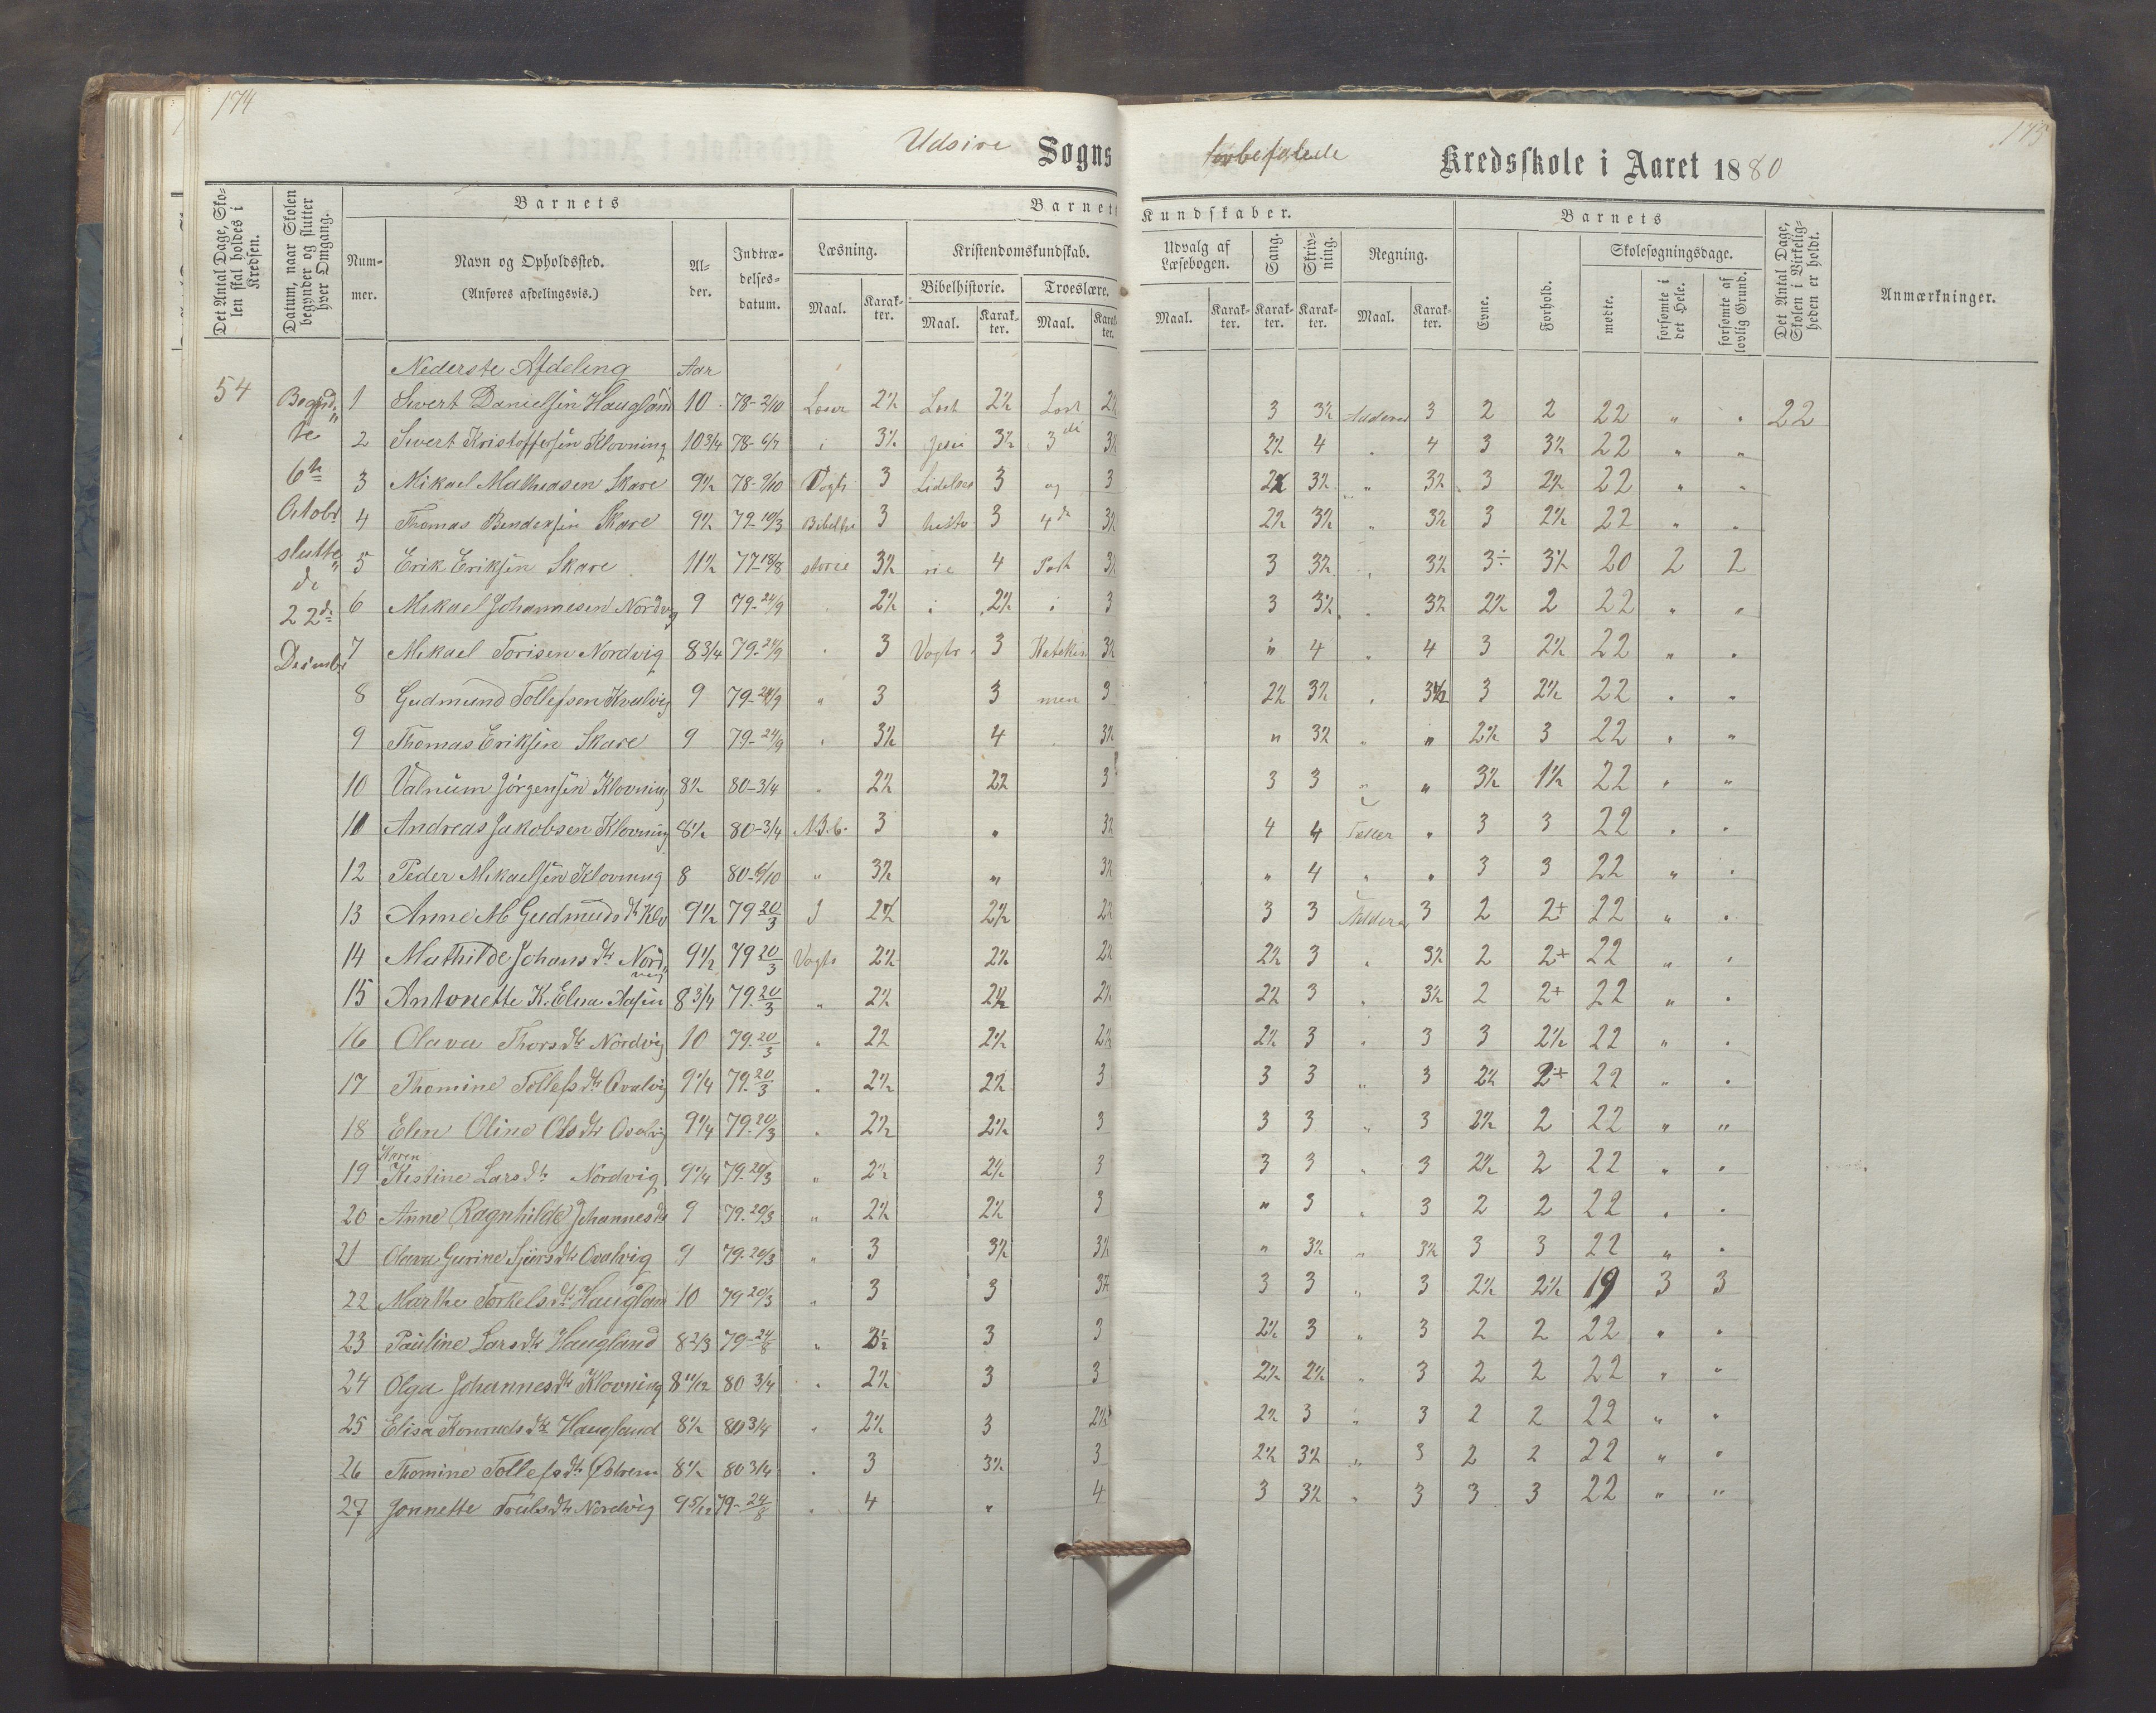 174
175
Udsire Sogns
Kredsskole i Aaret 1880
Det Antal Dage, Skolen skal holdes i Kredsen.
Datum, naar Skolen begynder og slutter hver Omgang.
Barnets
Nummer.
Navn og Opholdssted.
(Anføres afdelingsvis.)
Alder.
Indtrædelsesdatum.
Barnets
Kundskaber.
Læsning.
Maal.
Karakter.
Kristendomskundskab.
Bibelhistorie.
Maal.
Karakter.
Troeslære.
Maal.
Karakter.
Udvalg af Læsebogen.
Maal.
Karakter.
Sang.
Karakter.
Skrivning.
Karakter.
Regning.
Maal.
Karakter.
Barnets
Evne.
Forhold.
Skolesøgningsdage.
mødte.
forsømte i det Hele.
forsømte af lovlig Grund.
Det Antal Dage, Skolen i Virkeligheden er holdt.
Anmærkninger.
Nederste Afdeling Aar
54 Begyndte 6te Octobr sluttede 22de Desembr
1 Sivert Danielsen Haugland 10 78-2/10 Læser 2½ Læst 2½ Læst 2½ 3 3½ Adderer 3 2 2 22 " " 22
2 Sivert Kristoffersen Klovning 10 3/4 78-6/7 i 3½ Jesu 3½ 3die 3½ 2½ 4 " 4 3 3½ 22 " "
3 Mikael Matheasen Skare 9½ 78-9/10 Vogts 3 Lidelses 3 og 3 2½ 3½ " 3½ 3 2½ 22 " "
4 Thomas Bendiksen Skare 9½ 79-10/3 Bibelhi 3 histo 3 4de 3½ 2½ 3½ " 3½ 3 2½ 22 " "
5 Erik Eriksen Skare 11½ 77-18/8 storie 3½ rie 4 Part 3½ 3 3½ " 3½ 3÷ 3½ 20 2 2
6 Mikael Johannesen Nordvig 9 79-24/9 " 2½ i 2½ i 3 3 3½ " 3½ 2½ 2 22 " "
7 Mikael Torisen Nordvig 8 3/4 79-24/9 " 3 Vogts 3 Katekis 3½ " 4 " 4 3 2½ 22 " "
8 Gudmund Tollefsen Kvalvig 9 79-24/9 " 3 3 men 3 2½ 3½ " 3½ 3 2½ 22 " "
9 Thomas Eriksen Skare 9 79-24/9 " 3½ 4 3½ " 3½ " " 2½ 3 22 " "
10 Valnum Jørgensen Klovning 8½ 80-3/4 " 2½ 2½ 3 3 3 " " 3½ 1½ 22 " "
11 Andreas Jakobsen Klovning 8½ 80-3/4 A.B.c. 3 " 3½ 4 4 Tæller " 3 3 22 " "
12 Peder Mikaelsen Klovning 8 80-6/10 " 3½ " 3½ " 4 " " 3 3 22 " "
13 Anne M Gudmuds dtr Klo 9½ 79 20/3 I 2½ 2½ 2½ 3 3 Adderer 3 2 2+ 22 " "
14 Mathilde Johans dtr Nordvig 9½ 79 20/3 Vogts 2½ 2½ 2½ 2½ 3 " 3½ 2 2+ 22 " "
15 Antonette K. Elna Aasen 8 3/4 79.20/3 " 2½ 2½ 2½ 2½ 3 " 3½ 2 2+ 22 " "
16 Olava Thors dtr Nordvig 10 79.20/3 " 2½ 2½ 2½ 2½ 3 " 3 3 2½ 22 " "
17 Thomine Tollefs dtr Qvalvig 9¼ 79.20/3 " 2½ 2½ 3 3 3 " 3 2½ 2+ 22 " "
18 Elen Oline Ols dtr Qvalvig 9¼ 79.20/3 " 2½ 2½ 3 3 3 " 3 2½ 2 22 " "
Karen
19 Kistine Lars dtr Nordvig 9¼ 79.20/3 " 2½ 2½ 3 3 3 " 3 2½ 2 22 " "
20 Anne Ragnhilde Johannes dtr 9 79.20/3 " 2½ 2½ 3 " 3 " 3 2 2 22 " "
21 Olava Gurine Sjurs dtr Qvalvig 9 79.20/3 " 3 3½ 3½ " 3½ " 3½ 3 3 22 " "
22 Marthe Torkels dtr Haugland 10 79 20/3 " 3 3 3½ 3 3 " 3 2½ 2½ 19 3 3
23 Pauline Lars dtr Haugland 8 2/3 79-24/8 " 3 3 2½ 3 " 3 2 2 22 " "
24 Olga Johannes dtr Klovning 8 11/12 80 3/4 " 2½ 3 3 2½ 2½ " 3 2 2 22 " "
25 Elisa Konruds dtr Haugland 8½ 80 3/4 " 2½ 3 2½ 2½ 3 " 3 2 2 22 " "
26 Thomine Tollefs dtr Østrem 8½ 80 3/4 " 3 3½ 3 2½ 3½ " 3 2 2 22 " "
27 Jonnette Truls dtr Nordvig 9 5/12 79-24/8 " 4 " 4 3 3½ " 3 3 3 22 " "